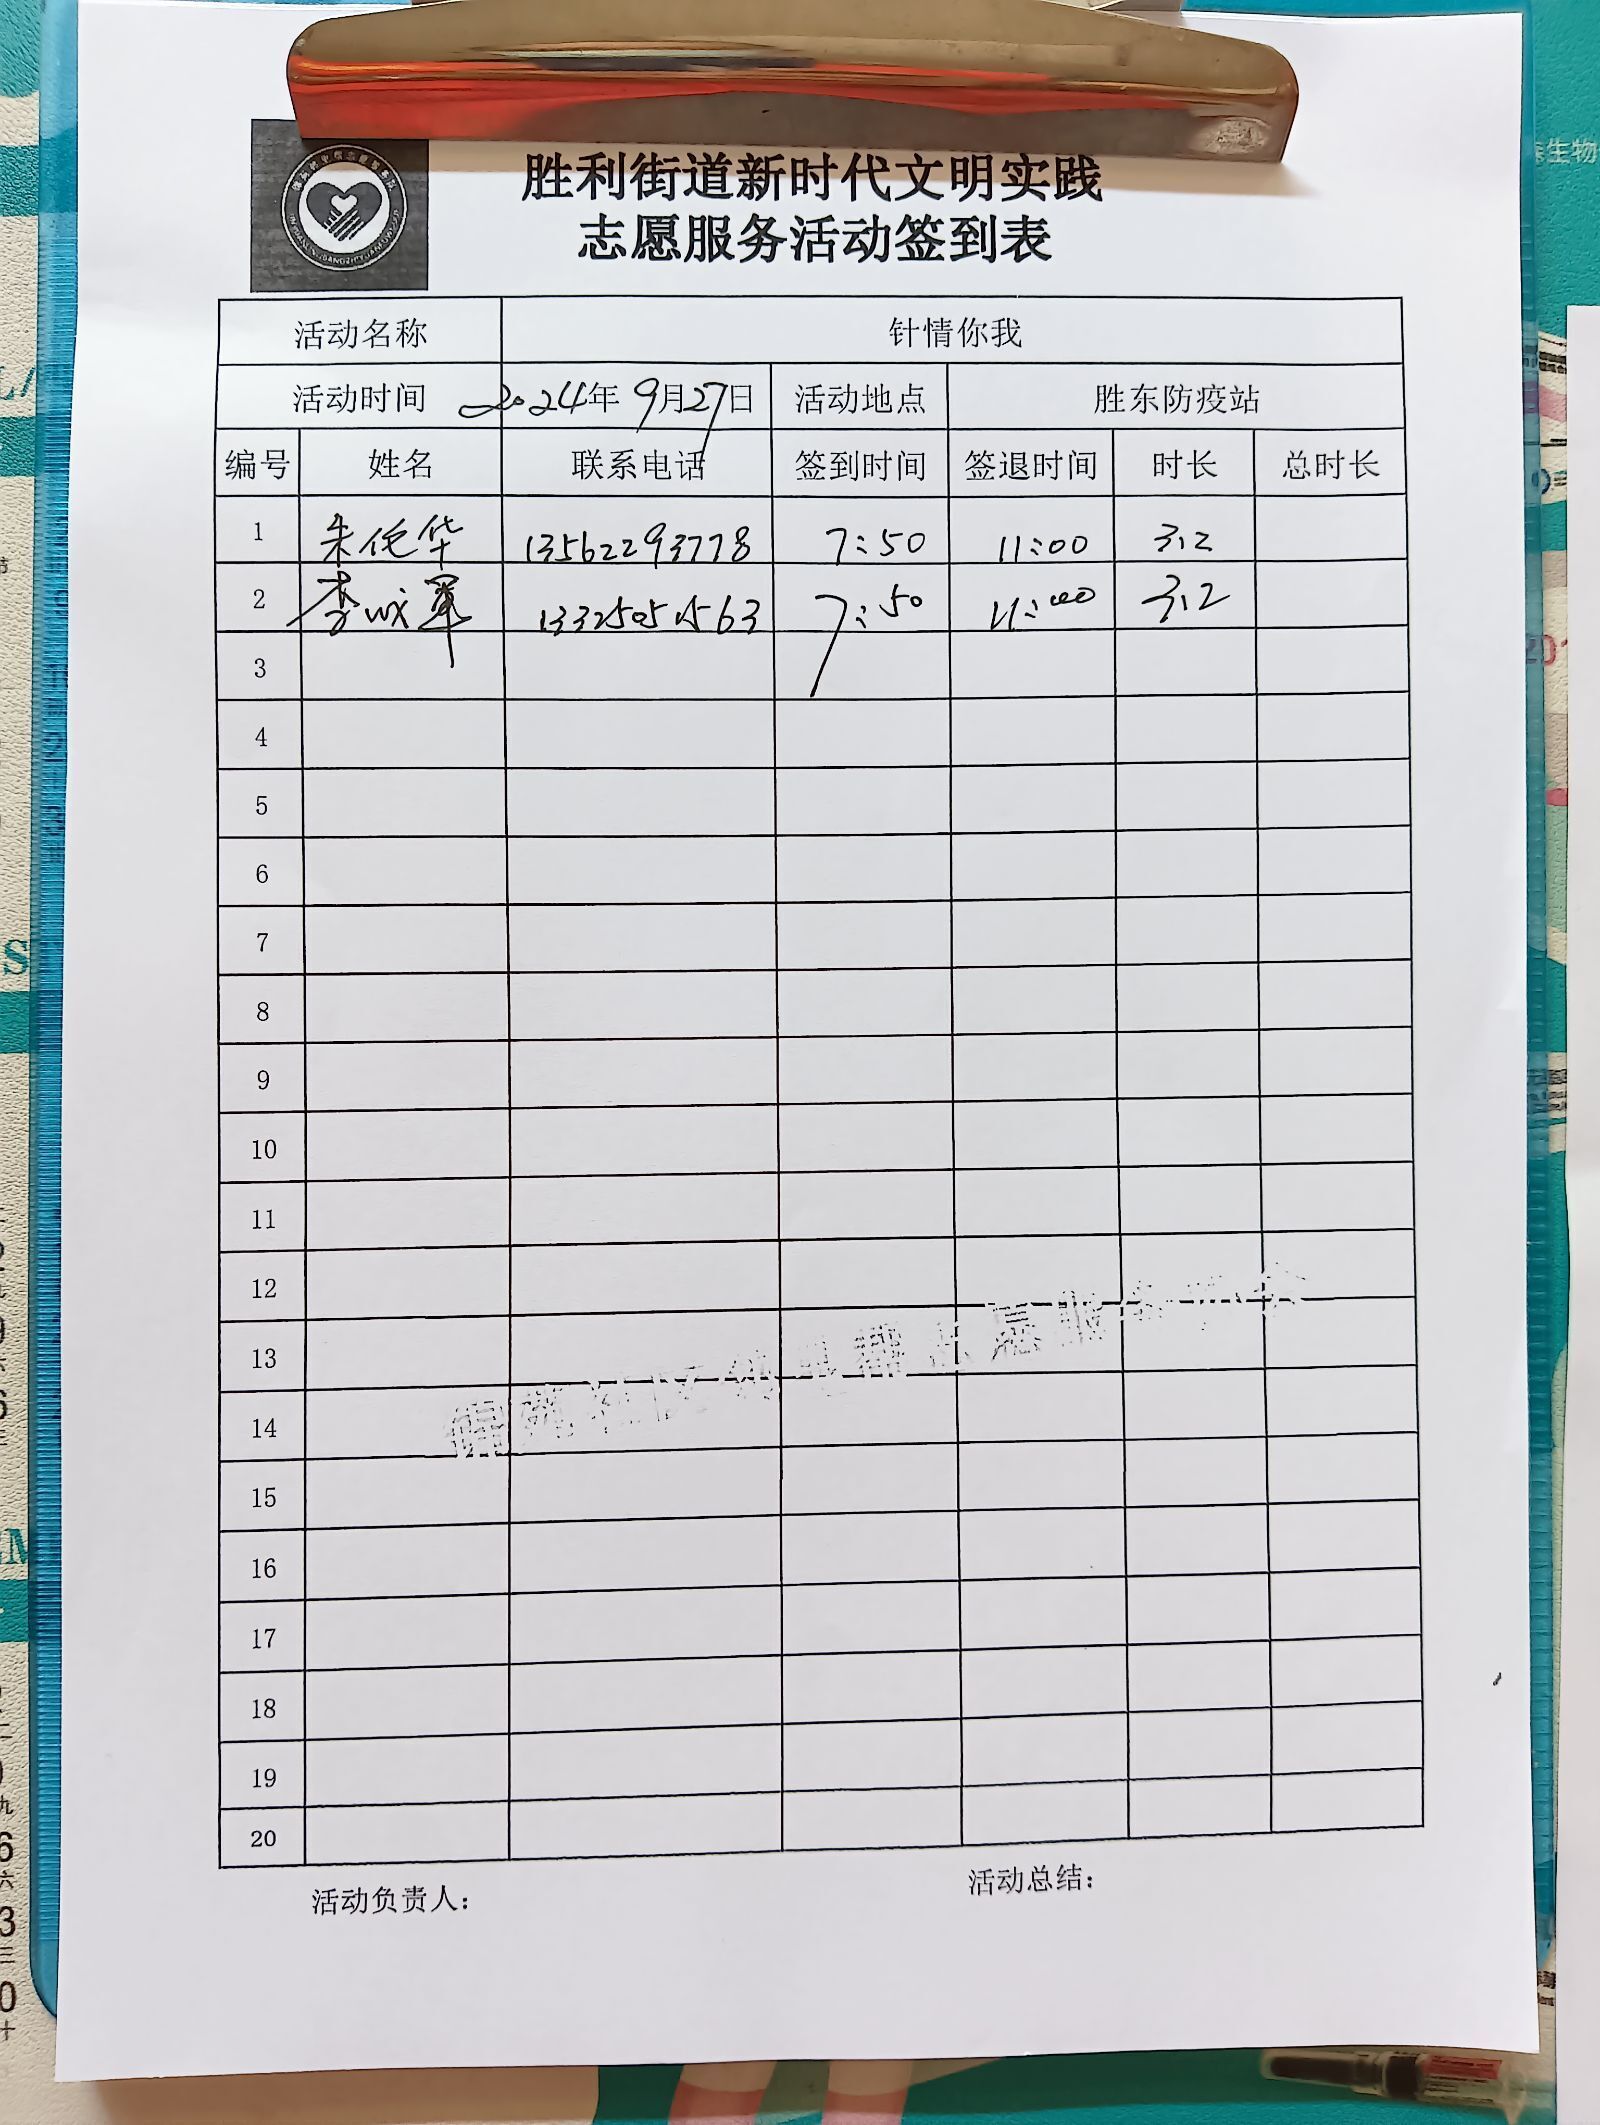 胜利街道新时代文明实践
志愿服务活动签到表
活动名称 针情你我
活动时间 2024年 9月27日 活动地点 胜东防疫站
编号 姓名 联系电话 签到时间 签退时间 时长 总时长
1 朱佗华 13562293778 7:50 11:00 3.2
2 李成军 13325051563 7:50 11:00 3.2
3
4
5
6
7
8
9
10
11
12
13
14
15
16
17
18
19
20
活动负责人: 活动总结: